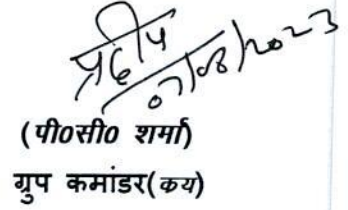 प्रदीप
07/08/2023
(पी0सी0 शर्मा)
ग्रुप कमांडर(कय)